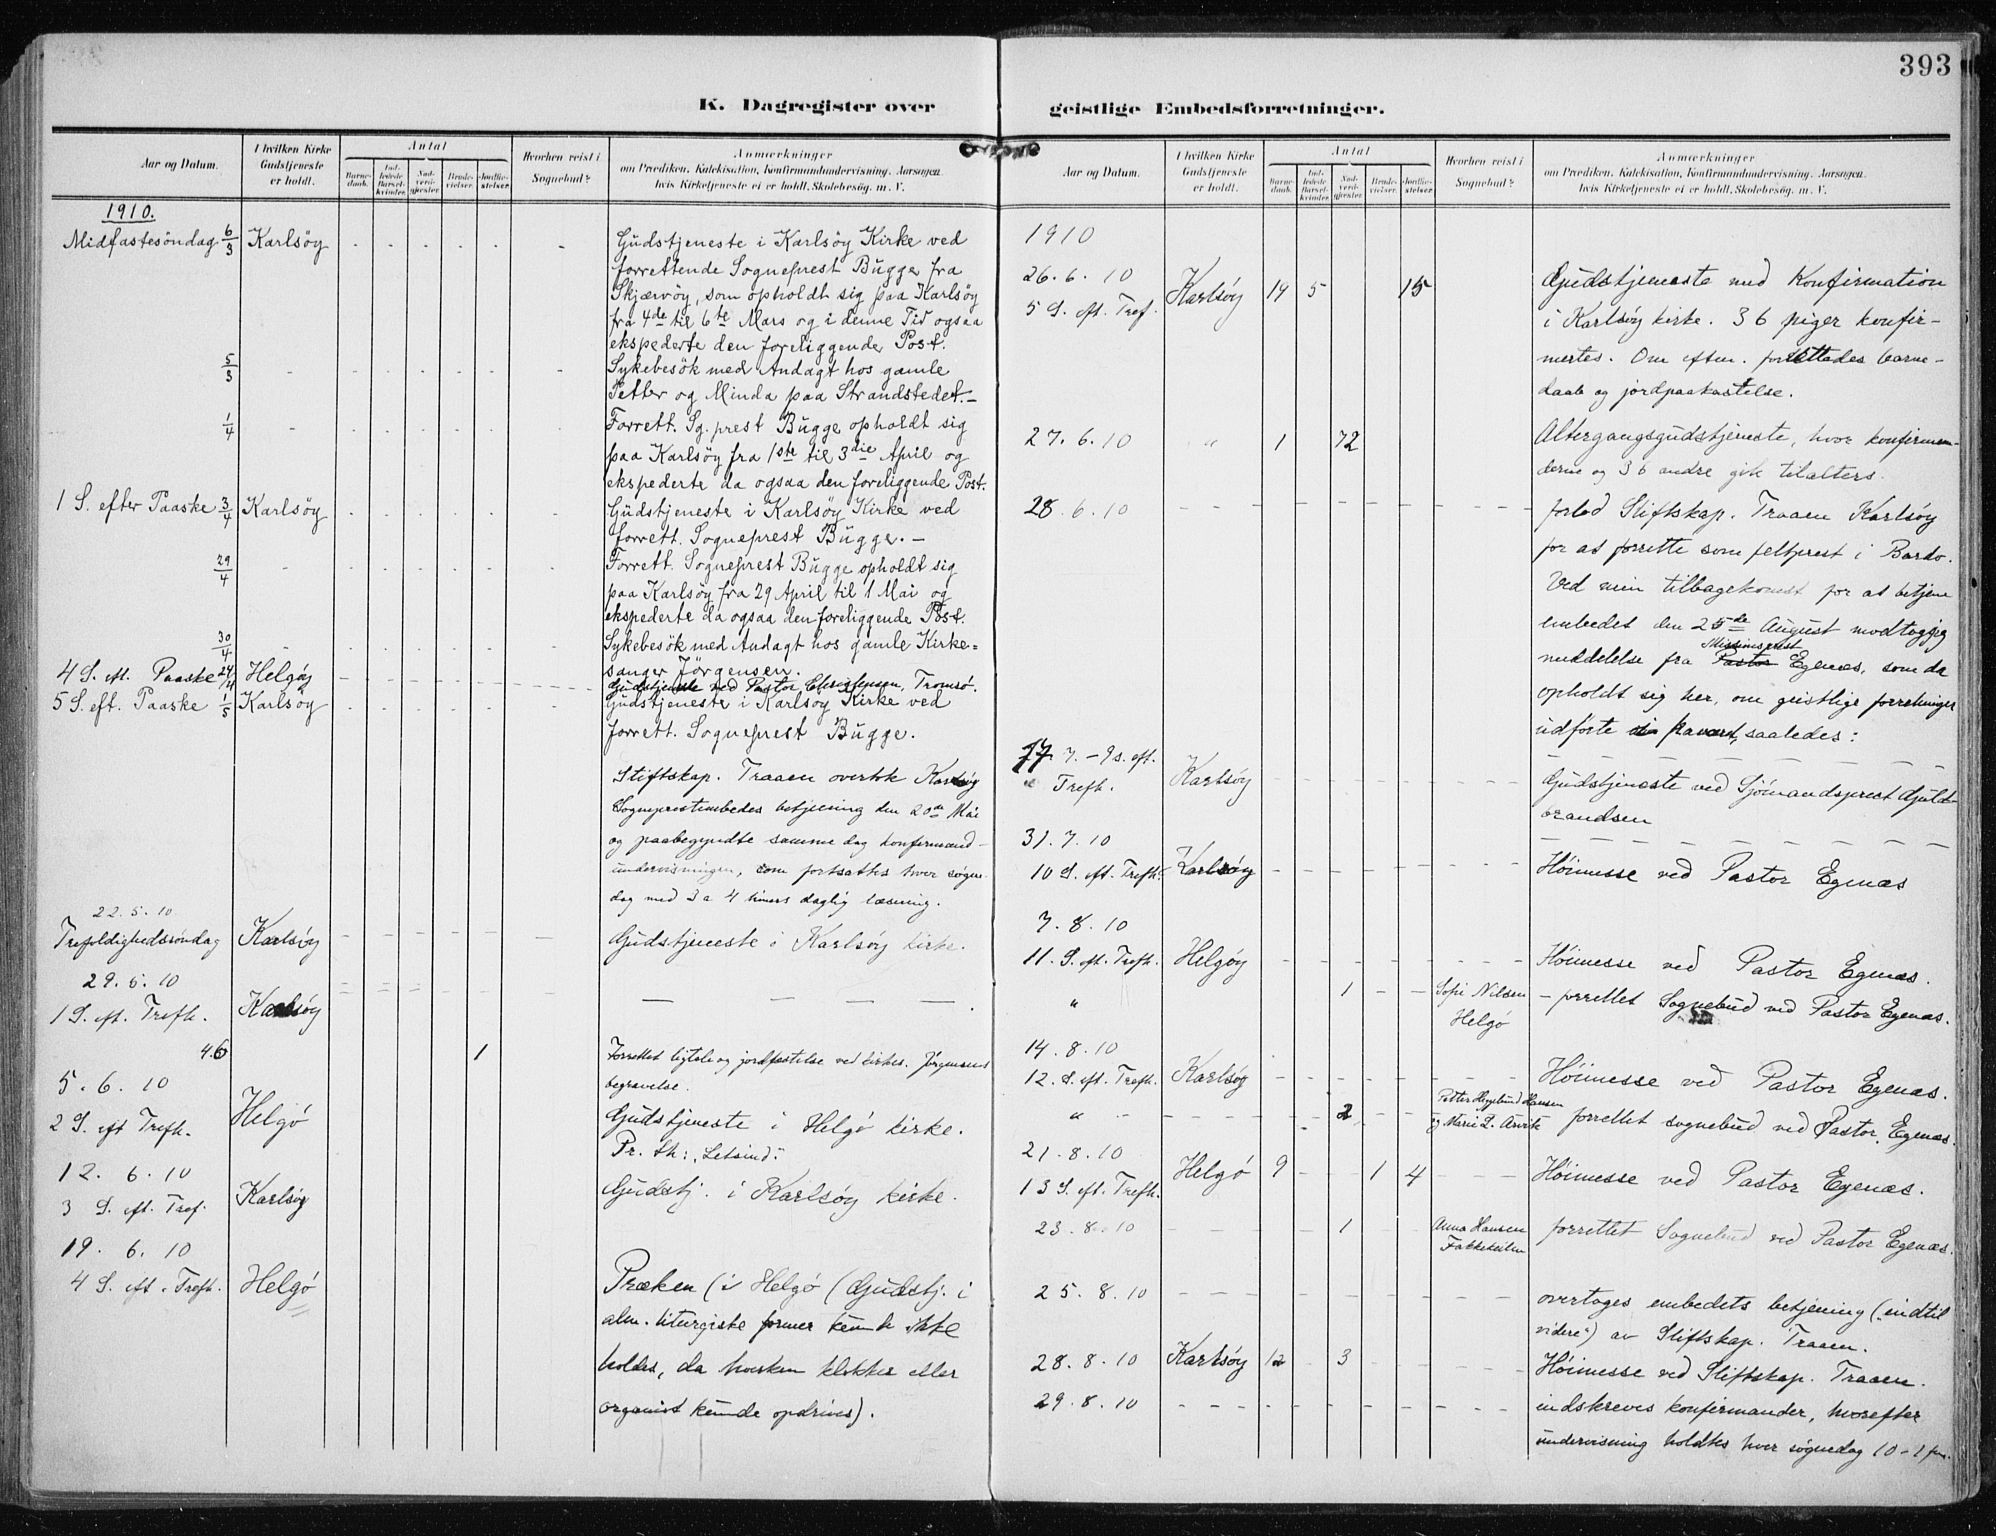 393
K. Dagregister over
geistlige Embedsforretninger.
Aar og Datum.
I hvilken Kirke Gudstjeneste er holdt.
Antal
Barnedaab.
Indledede Barselkvinder.
Nadverdgjester.
Brudevielser.
Jordfæstelser.
Hvorhen reist i Sognebud?
Anmærkninger
om Prædiken, Katekisation, Konfirmandundervisning, Aarsagen,
hvis Kirketjeneste ei er holdt, Skolebesøg, m. V.
1910.
Midfastesöndag 6/3 Karlsöy Gudstjeneste i Karlsöy Kirke ved
forrettende Sogneprest Bugge fra
Skjærvöy, som opholdt sig paa Karlsöy
fra 4de til 6te Mars og i denne Tid ogsaa
ekspederte den foreliggende Post.
5/3 Sykebesök med Andagt hos gamle
Petter og Minda paa Strandstedet.–
1/4 Forrett. Sg.prest Bugge opholdt sig
paa Karlsöy fra 1ste til 3die April og
ekspederte da ogsaa den foreliggende Post.
1 S. efter Paaske 3/4 Karlsöy Gudstjeneste i Karlsöy Kirke ved
forrett. Sogneprest Bugge.–
29/4 Forrett. Sogneprest Bugge opholdt sig
paa Karlsöy fra 29 April til 1 Mai og
ekspederte da ogsaa den foreliggende Post.
30/4 Sykebesök med Andagt hos gamle Kirke=
sanger Jörgensen.
4 S. eft. Paaske 24/4 Helgöy Gudstjeneste ved Pastor Christensen, Tromsö.
5 S. eft. Paaske 1/5 Karlsöy Gudstjeneste i Karlsöy Kirke ved
forrett. Sogneprest Bugge.
Stiftskap. Traaen overtok Karlsöy
Sogneprestembedes betjening den 20de Mai
og paabegyndte samme dag konfirmand-
undervisningen, som fortsattes hver søgne-
dag med 3 a 4 timers daglig læsning.
22.5.10
Trefoldighedssöndag Karlsöy Gudstjeneste i Karlsöy kirke.
29.5.10
1 S. eft. Trefh. Karlsöy — — —
4.6 1 Forrettet ligtale og jordfæstelse ved kirkes. Jörgensens
begravelse.
5. 6. 10
2 S. eft Trefh. Helgö Gudstjeneste i Helgö kirke.
Pr. th:
12. 6. 10
3 S. eft. Tref. Karlsöy Gudstj. i Karlsöy kirke.
19. 6. 10
4 S. eft. Trefh. Helgö Præken (i Helgö (Gudstj. i
alm. liturgiske former kunde ikke
holdes, da hverken klokker eller
organist kunde opdrives).
Aar og Datum.
I hvilken Kirke Gudstjeneste er holdt.
Antal
Barnedaab.
Indledede Barselkvinder.
Nadverdgjester.
Brudevielser.
Jordfæstelser.
Hvorhen reist i Sognebud?
Anmærkninger
om Prædiken, Katekisation, Konfirmandundervisning, Aarsagen,
hvis Kirketjeneste ei er holdt, Skolebesøg, m. V.
1910
26. 6. 10
5 S. eft. Tref. Karlsöy 14 5 15 Gudstjeneste med Konfirmation
i Karlsöy kirke. 36 piger konfir-
mertes. Om eften. forrettedes barne-
daab og jordpaakastelse.
27. 6. 10 " 1 72 Altergangsgudstjeneste, hvor konfirman-
derne og 36 andre gik tilalters.
28. 6. 10 forlod Stiftskap. Traaen Karlsöy
for at forrette som feltprest i Bardo.
Ved min tilbagekomst for at betjene
embedet den 25de August modtog jeg
Missionsprest
meddelelse fra Pastor Egenæs, som da
opholdt sig her, om geistlige forretninger
udförte saaledes:
17. 7. – 9 S. eft.
Trefh. Karlsöy Gudstjeneste ved Sjömandsprest Guld-
brandsen
31. 7. 10
10 S. eft. Trefh. Karlsöy Höimesse ved Pastor Egenæs
7. 8. 10
11. S. eft. Trefh. Helgöy Höimesse ved Pastor Egenæs.
" 1 Sofie Nilsen – forrettet Sognebud ved Pastor Egenæs.
Helgö
14. 8. 10
12. S. eft. Trefh. Karlsöy Höimesse ved Pastor Egenæs.
" 2 Hansen
og Marie forrettet sognebud ved Pastor Egenæs.
21. 8. 10
13 S. eft. Trefh. Helgö 9 1 4 Höimesse ved Pastor Egenæs.
23. 8. 10 1 Anna Hansen forrettet Sognebud ved Pastor Egenæs.
25. 8. 10 overtoges embedets betjening („indtil
videre“) av Stiftskap. Traaen.
28. 8. 10 Karlsöy 12 3 Höimesse ved Stiftskap. Traaen.
29. 8. 10 indskreves konfirmander, hvorefter
undervisning holdtes hver søgnedag 10–1 fm.